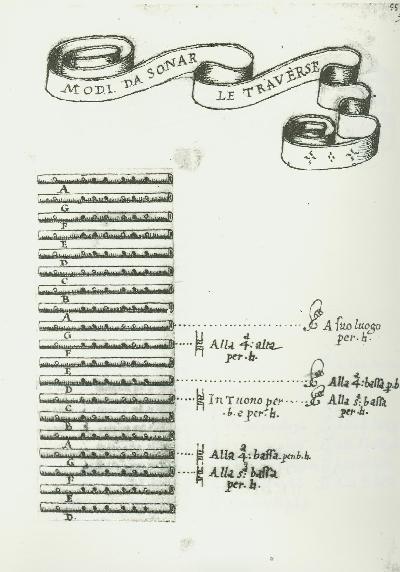 MODI. DA SONAR
LE TRAVERSE
A
G
F
E
D
C
B
A
G
F
E
D
C
B
A
G
F
E
D
A suo luogo
per. h.
Alla 4ª: alta
per. h.
Alla 4ª: bassa p.b
In Tuono per
.b. e per. h.
Alla 5ª: bassa
per. h.
Alla 4ª: bassa per.b.h.
Alla 5ª: bassa
per. h.